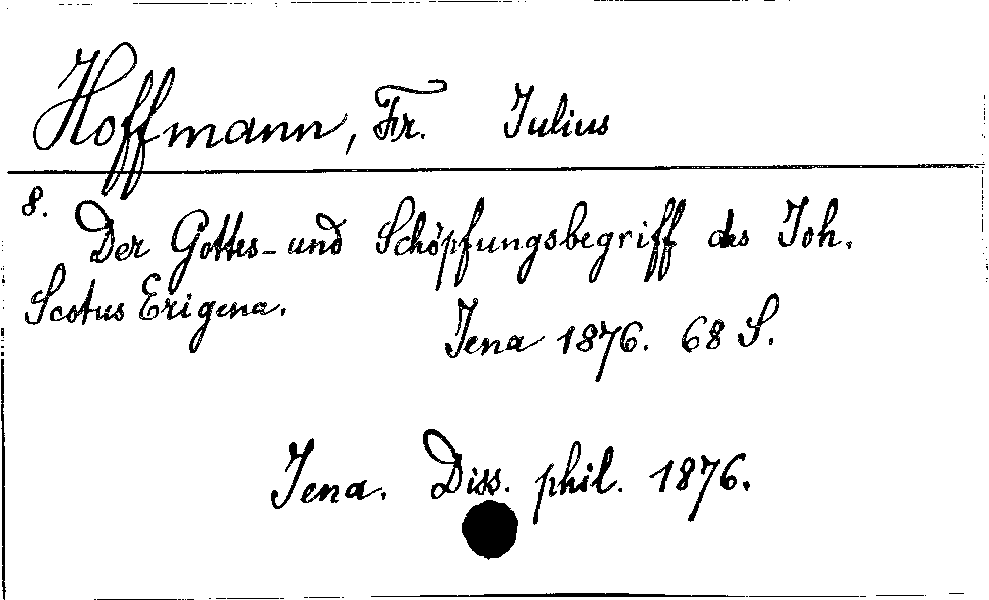 Hoffmann, Fr. Julius
8.
Der Gottes- und Schöpfungsbegriff des Joh.
Scotus Erigena.
Jena 1876. 68 S.
Jena. Diss. phil. 1876.